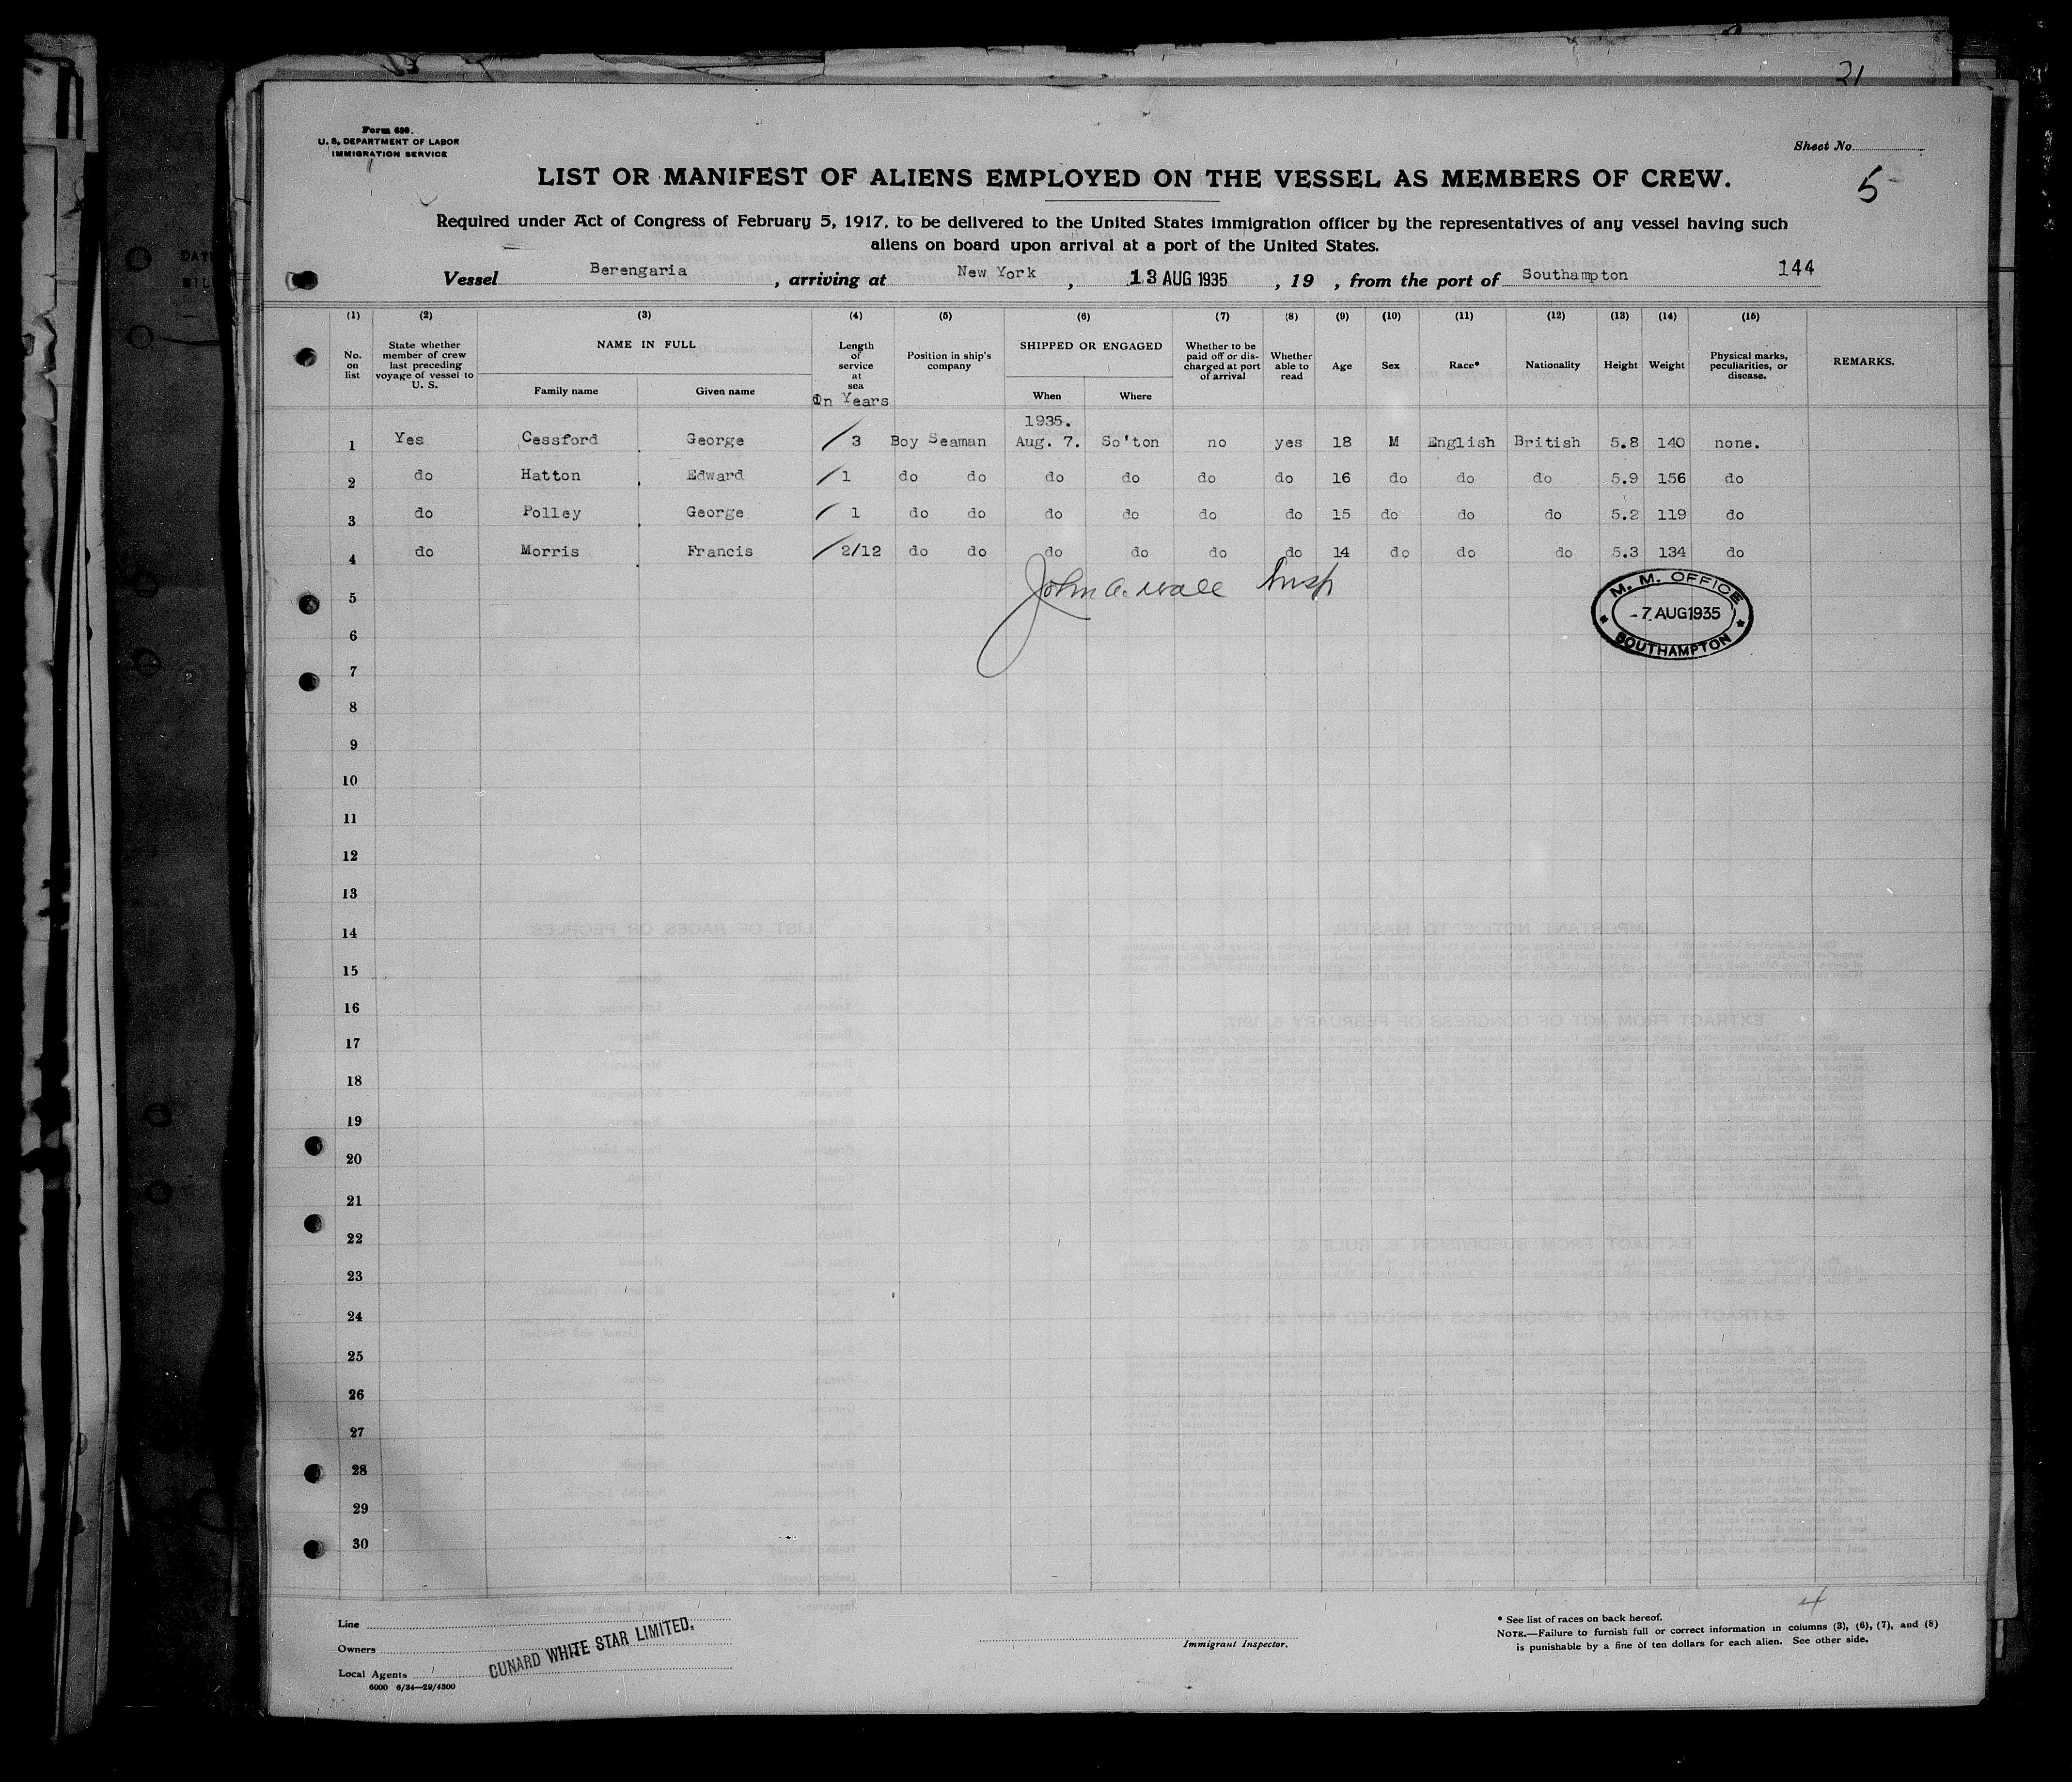 21
Form 680.
U. S. DEPARTMENT OF LABOR
IMMIGRATION SERVICE
Sheet No.
5
LIST OR MANIFEST OF ALIENS EMPLOYED ON THE VESSEL AS MEMBERS OF CREW.
Required under Act of Congress of February 5, 1917, to be delivered to the United States immigration officer by the representatives of any vessel having such
aliens on board upon arrival at a port of the United States.
Vessel Berengaria, arriving at New York, 13 AUG 1935, 19 , from the port of Southampton 144
(1) (2) (3) (4) (5) (6) (7) (8) (9) (10) (11) (12) (13) (14) (15)
No. on list State whether member of crew last preceding voyage of vessel to U. S. NAME IN FULL Family name Given name Length of service at sea In Years Position in ship's company SHIPPED OR ENGAGED When Where Whether to be paid off or discharged at port of arrival Whether able to read Age Sex Race* Nationality Height Weight Physical marks, peculiarities, or disease. REMARKS.
1935.
1 Yes Cessford George 3 Boy Seaman Aug. 7. So'ton no yes 18 M English British 5.8 140 none.
2 do Hatton Edward 1 do do do do do do 16 do do do 5.9 156 do
3 do Polley George 1 do do do do do do 15 do do do 5.2 119 do
4 do Morris Francis 2/12 do do do do do do 14 do do do 5.3 134 do
John A. Wall Insp
M. M. OFFICE
-7 AUG 1935
SOUTHAMPTON
5
6
7
8
9
10
11
12
13
14
15
16
17
18
19
20
21
22
23
24
25
26
27
28
29
30
4
Line
Owners
CUNARD WHITE STAR LIMITED.
Local Agents
6000 6/34—29/4300
Immigrant Inspector.
* See list of races on back hereof.
NOTE.—Failure to furnish full or correct information in columns (3), (6), (7), and (8)
is punishable by a fine of ten dollars for each alien. See other side.